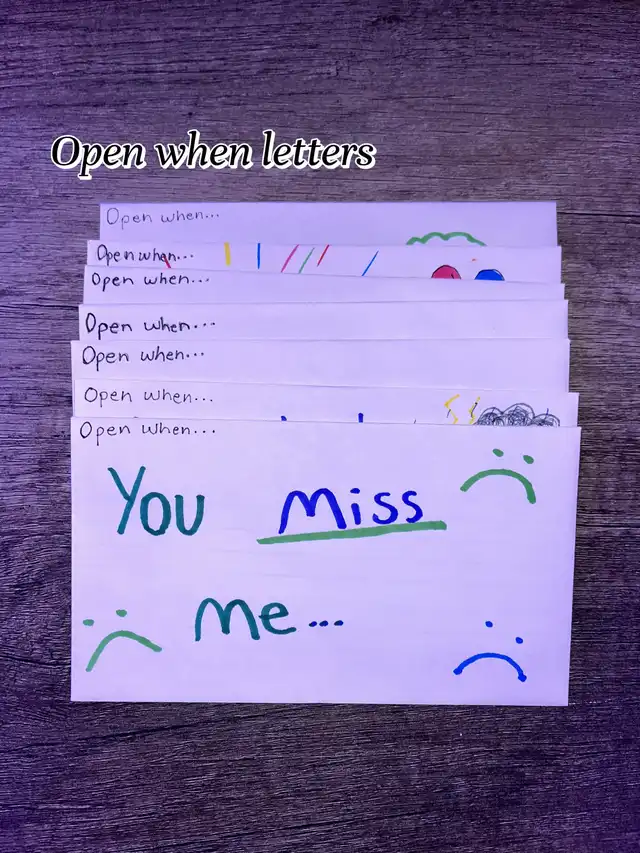 Open when letters
Open when...
Open when...
Open when...
Open when...
Open when...
Open when...
Open when...
You Miss
Me...